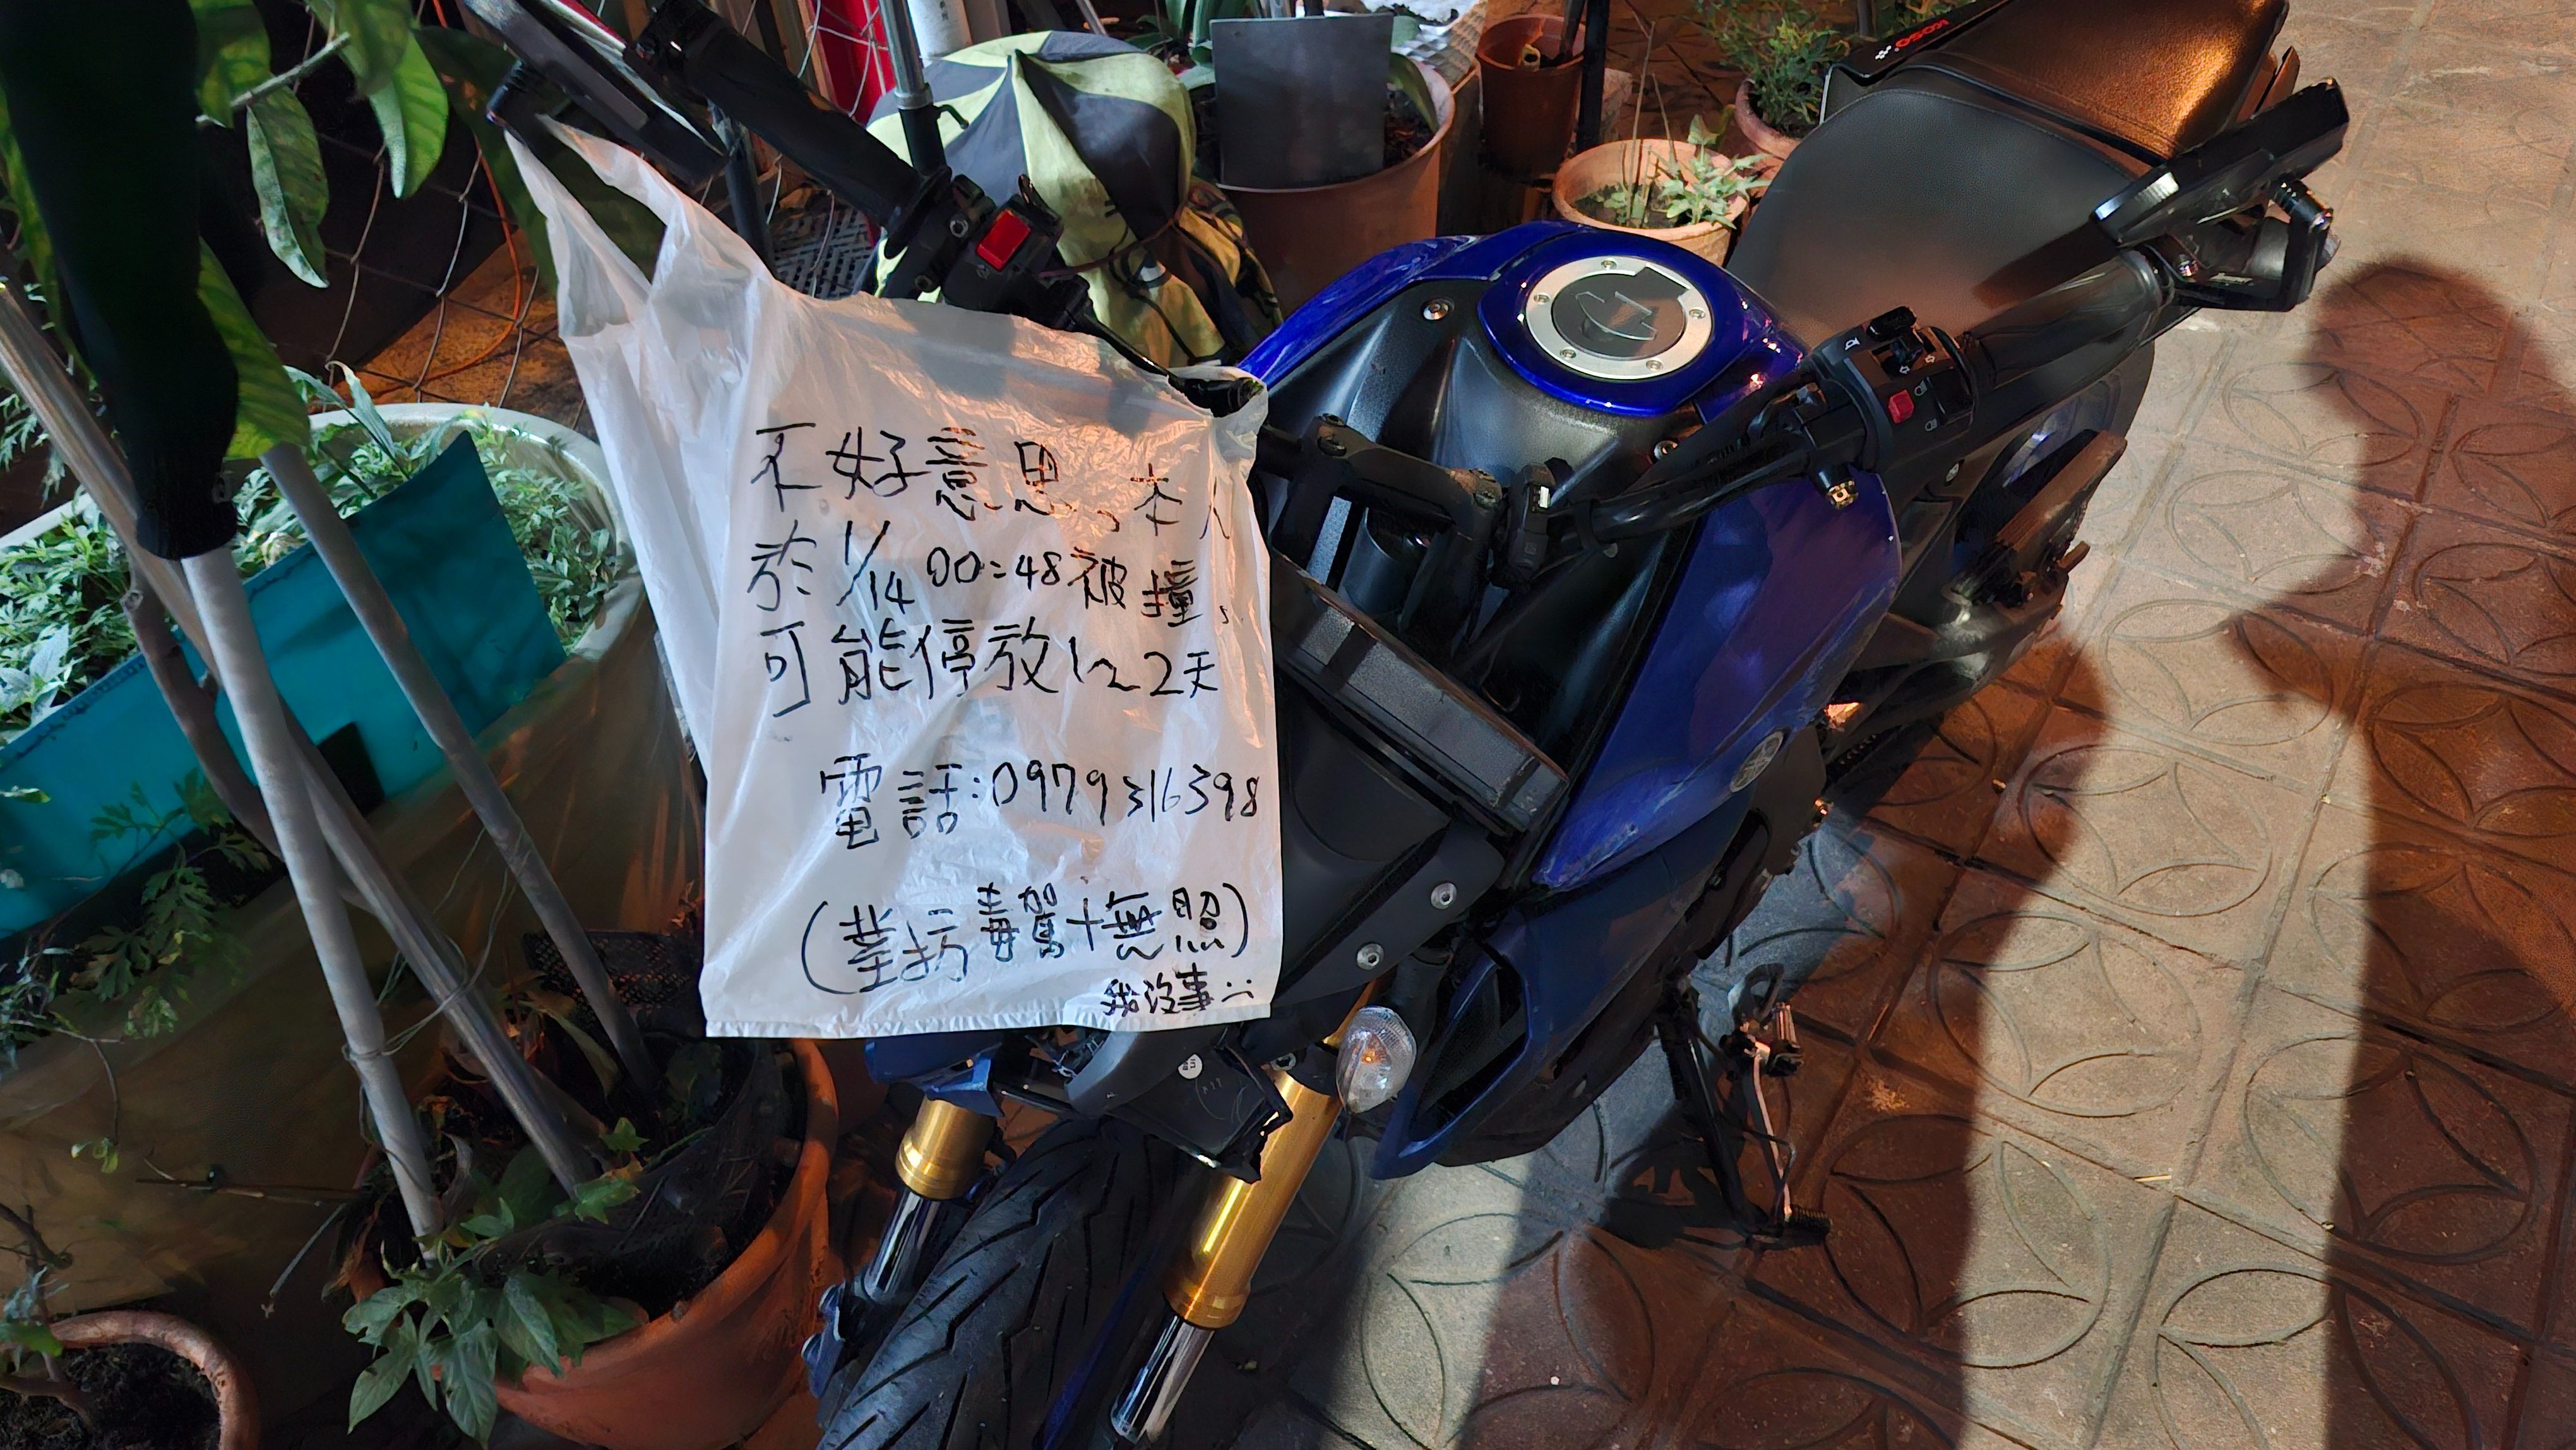 不好意思、本人
於1/14 00:48被撞,
可能停放1~2天
電話:0979316398
(肇事方毒駕+無照)
我沒事:)
KOSO